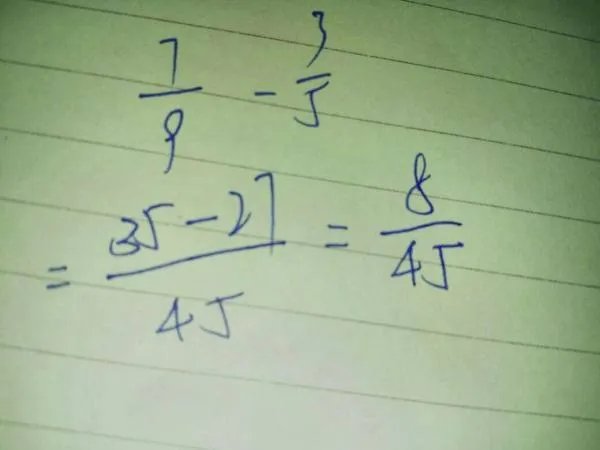 7/9 - 3/5
= (35-27)/45 = 8/45